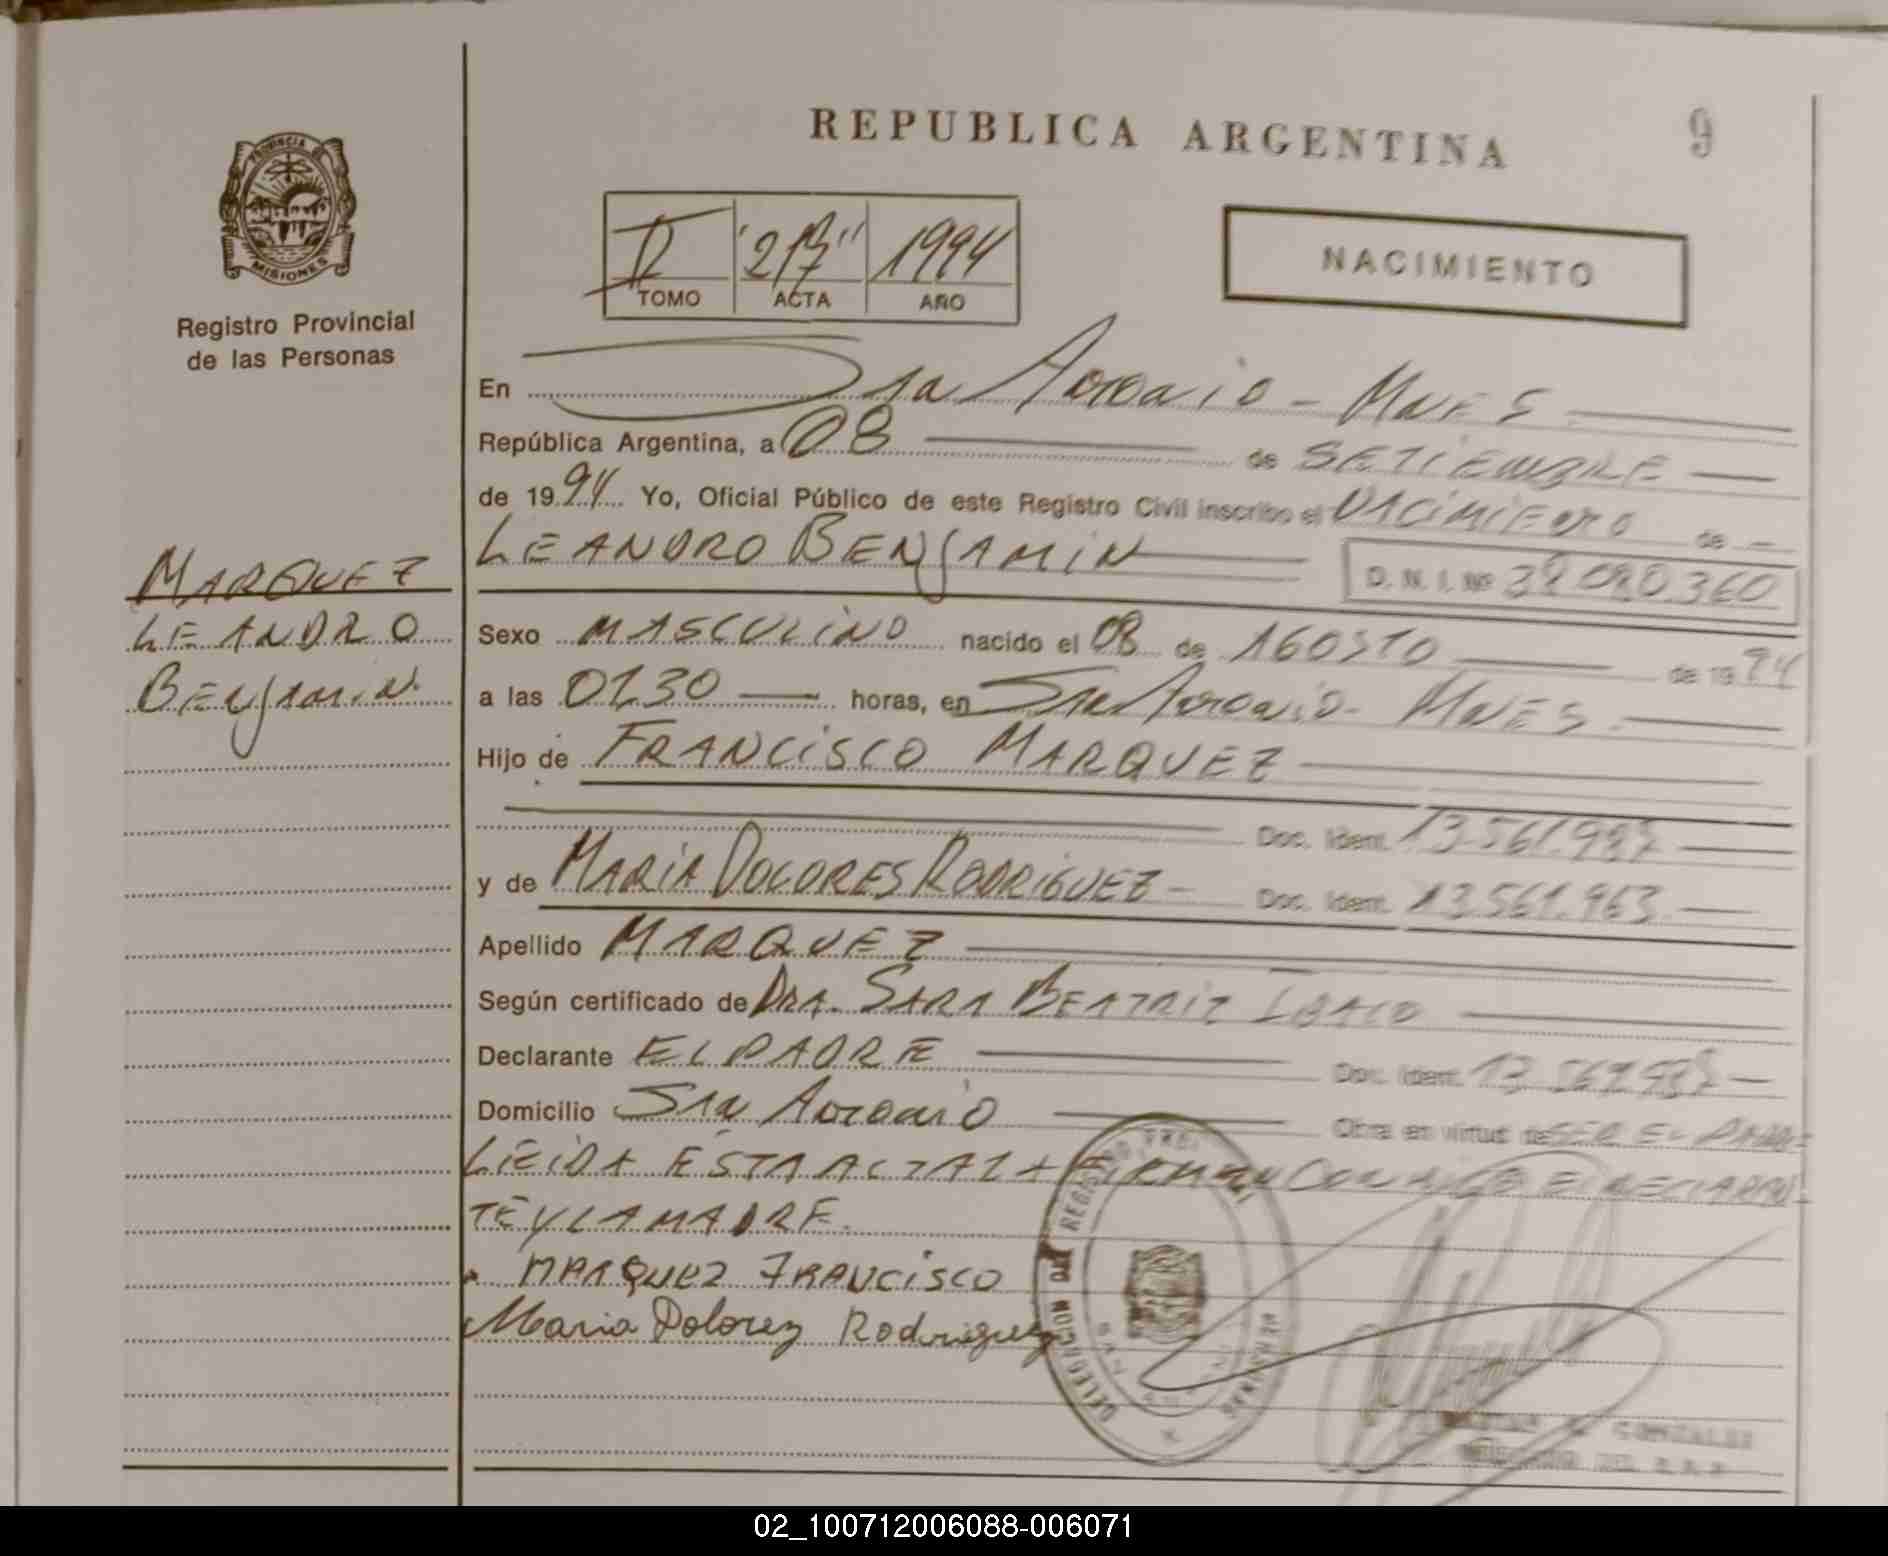 REPUBLICA ARGENTINA
9
PROVINCIA DE
MISIONES
Registro Provincial
de las Personas
II "217" 1994
TOMO ACTA AÑO
NACIMIENTO
En San Antonio - Mnes
República Argentina, a 08 de SETIEMBRE
de 1994 Yo, Oficial Público de este Registro Civil inscribo el NACIMIENTO de
LEANDRO BENJAMIN
D. N. I. Nº
MARQUEZ
LEANDRO
BENJAMIN
Sexo MASCULINO nacido el 08 de AGOSTO de 1994
a las 01,30 horas, en San Antonio - MNES
Hijo de FRANCISCO MARQUEZ
Doc. Ident.
y de MARIA DOLORES RODRIGUEZ - Doc. Ident. 13.561.963
Apellido MARQUEZ
Según certificado de DRA. SARA BEATRIZ
Declarante EL PADRE Doc. Ident.
Domicilio San Antonio Obra en virtud de SER EL PADRE
LEIDA ESTA ACTA LA FIRMAN CONMIGO EL DECLARAN
TE Y LA MADRE.
MARQUEZ FRANCISCO
Maria Dolorez Rodriguez
DELEGACION DEL REGISTRO
GONZALEZ
02_100712006088-006071